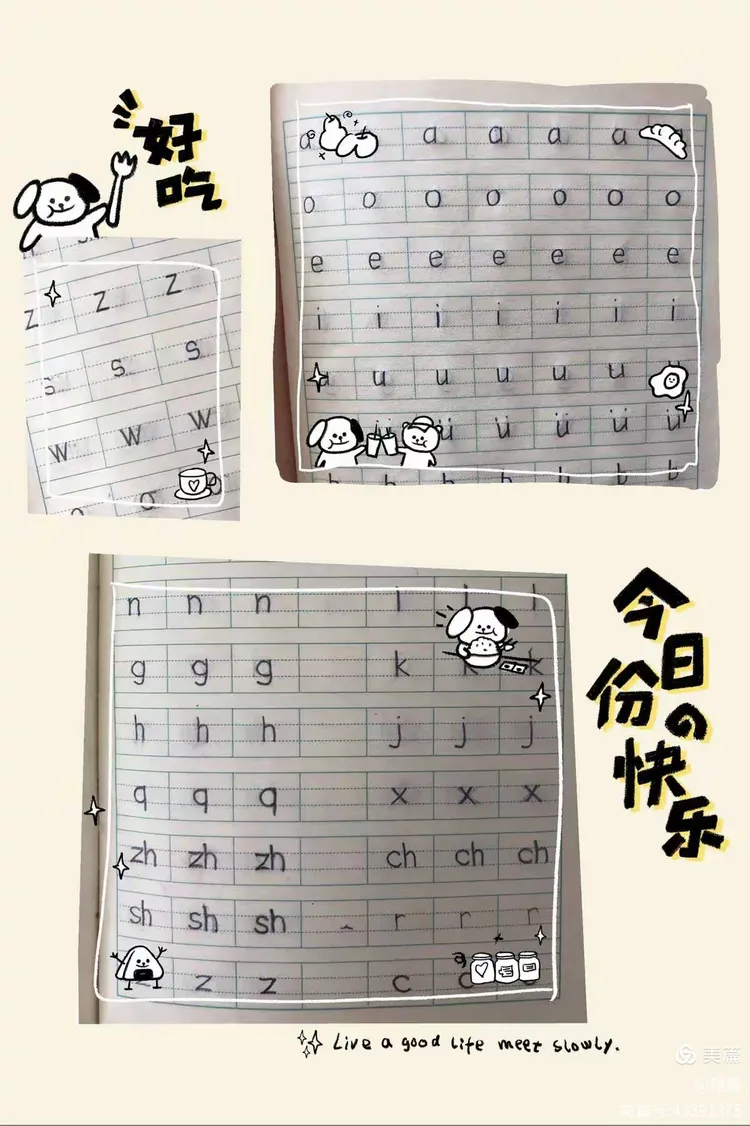 好吃
a a a a a
o o o o o o o
e e e e e e e
i i i i i i i
u u u u u
ü ü ü ü ü
z z z
s s s
w w w
今日份の快乐
n n n l l l
g g g k k k
h h h j j j
q q q x x x
zh zh zh ch ch ch
sh sh sh r r r
z z c c
Live a good life meet slowly.
美篇